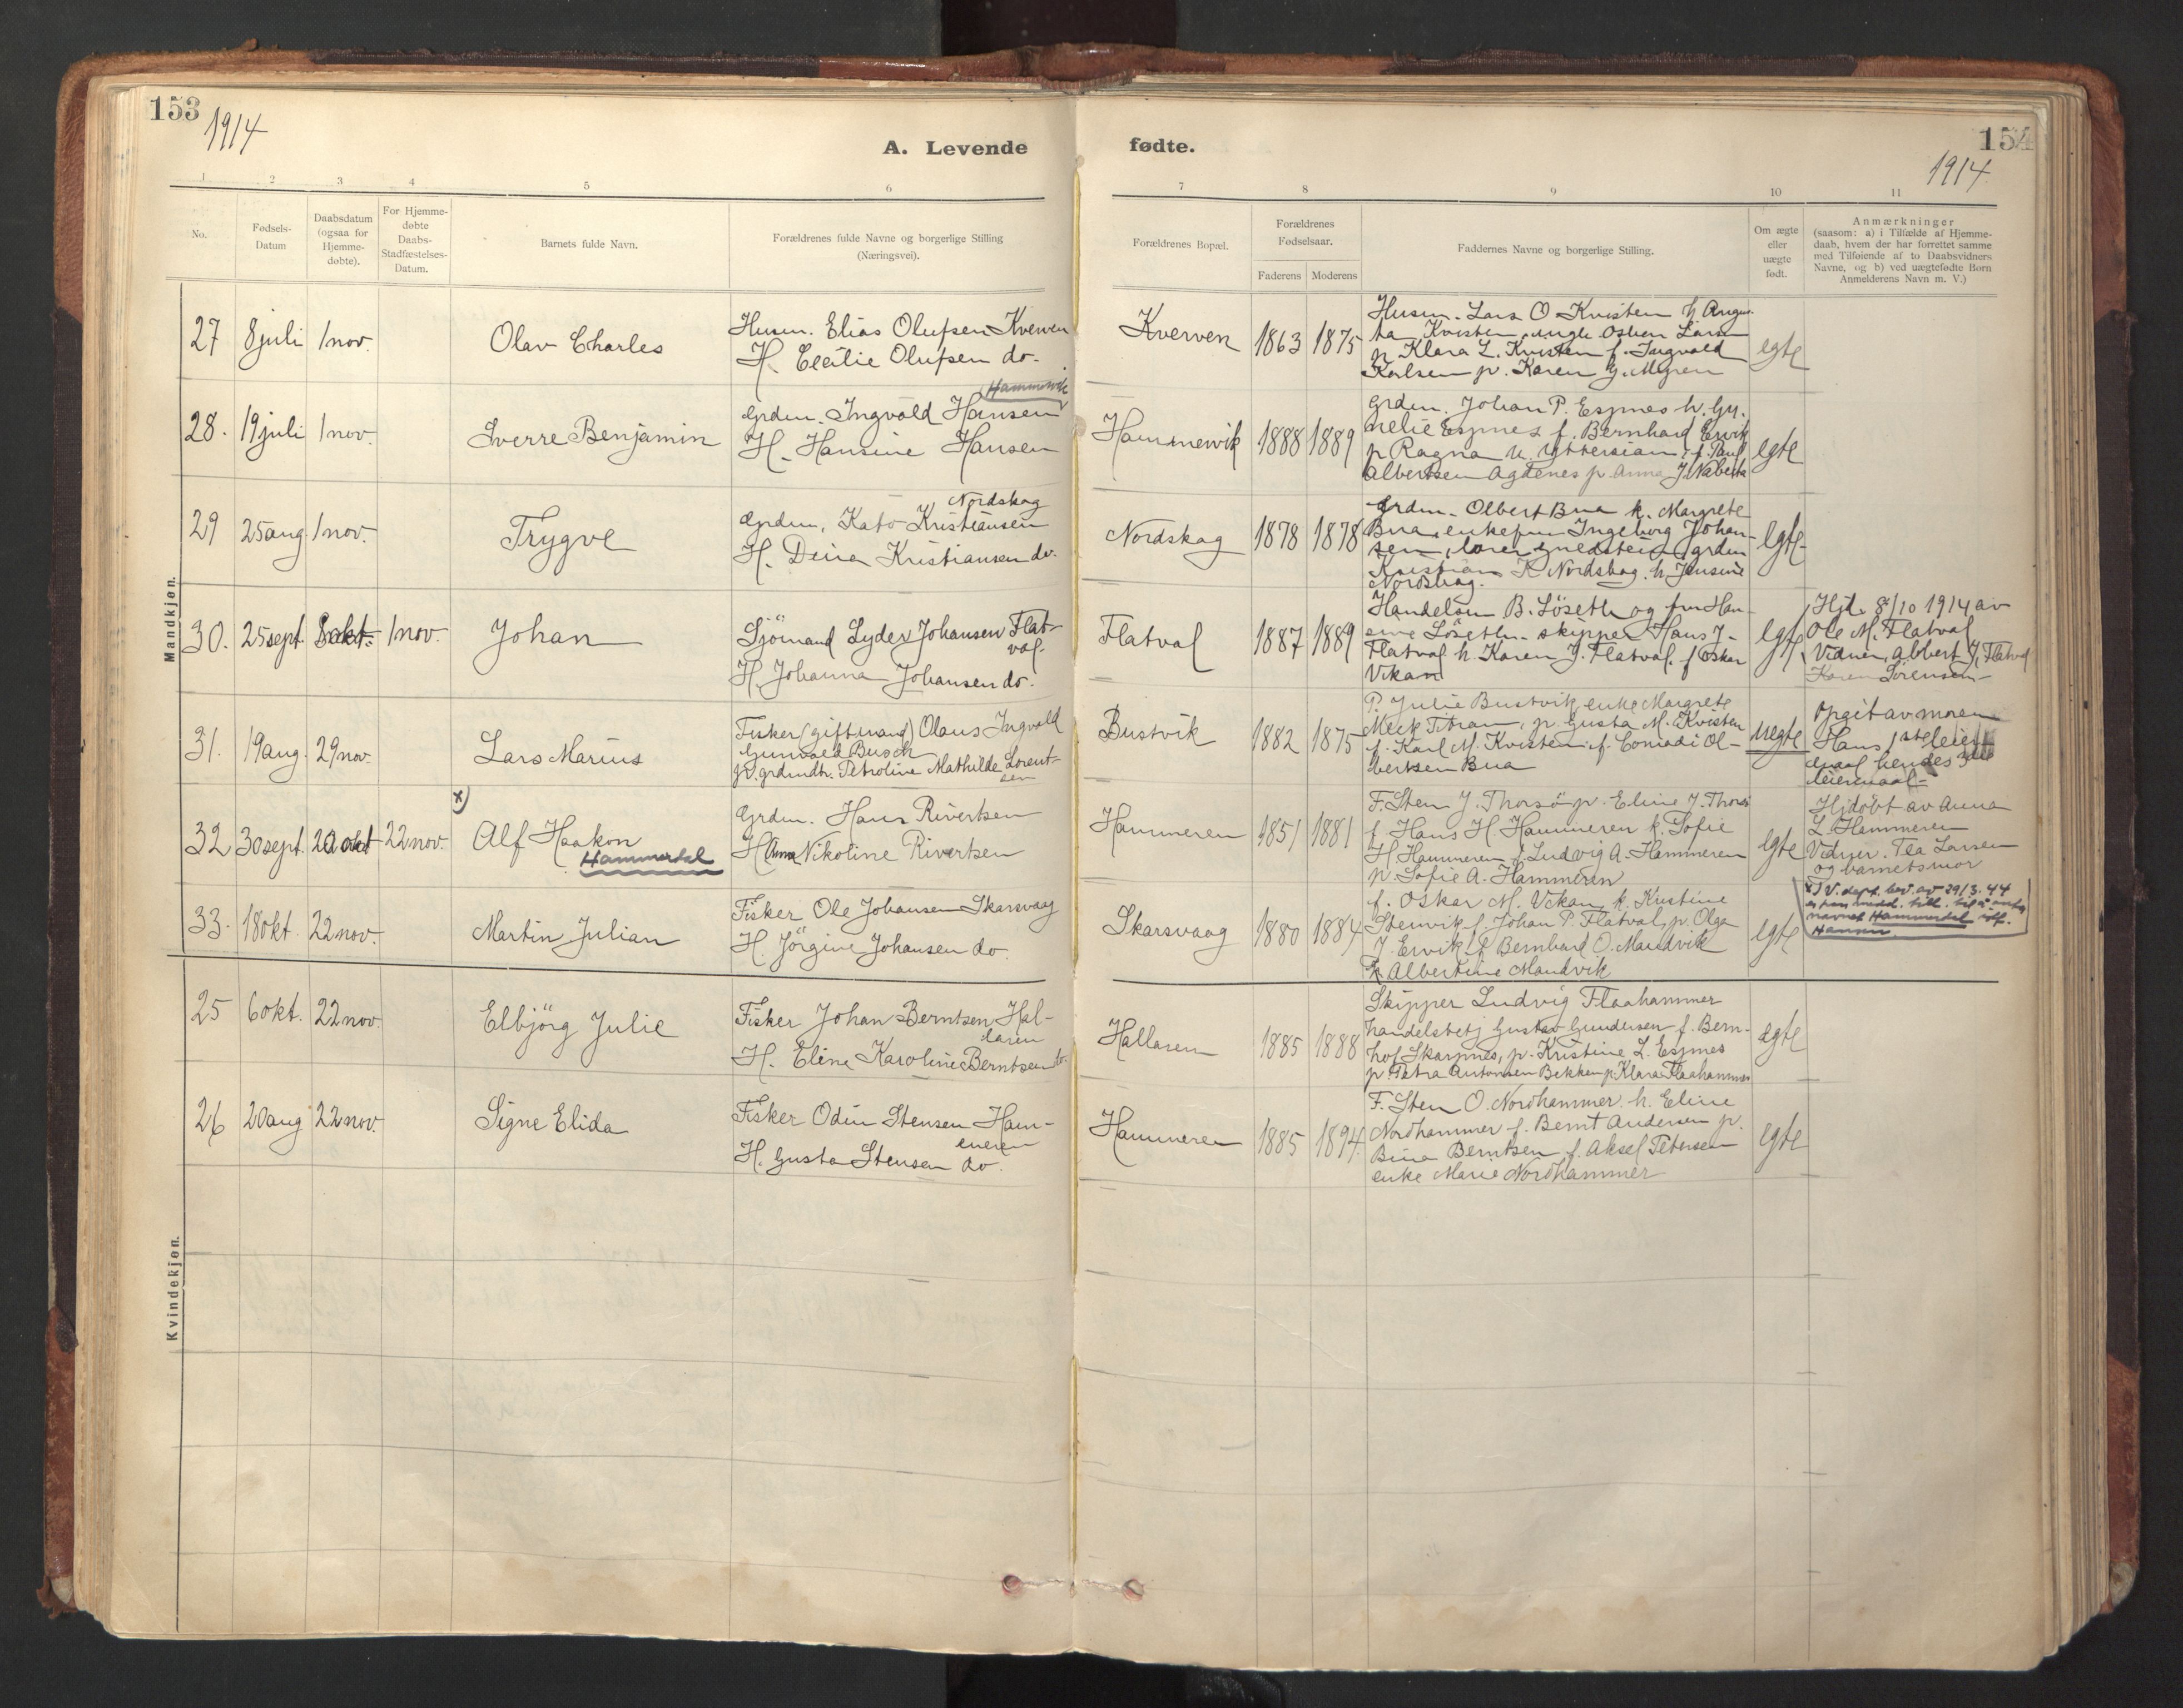 153
1914
A. Levende
1 2 3 4 5 6
No.
Fødsels-
Datum
Daabsdatum
(ogsaa for
Hjemme-
døbte).
For Hjemme-
døbte
Daabs-
Stadfæstelses-
Datum.
Barnets fulde Navn.
Forældrenes fulde Navne og borgerlige Stilling
(Næringsvei).
Mandkjøn.
27 8 juli 1 nov. Olav Charles
Husm. Elias Olufsen Kverven
H. Cecilie Olufsen do.
28. 19 juli 1 nov. Sverre Benjamin
Hammervik
Grdm. Ingvald Hansen
H. Hansine Hansen
29 25 aug. 1 nov. Trygve
Nordskag
Grdm. Kato Kristiansen
H. Dina Kristiansen do.
30. 25 sept. 8 okt. 1 nov. Johan
Sjömand Lyder Johansen Flat-
val.
H. Johanna Johansen do.
31. 19 aug. 29 nov. Lars Marius
Fisker (gift mand) Olaus Ingvald
Gunvald Busch
p. grdmdtr. Petroline Mathilde Lorent-
sen
x)
32 30 sept. 20 okt 22 nov. Alf Haakon
Hammerdal
Grdm. Hans Rivertsen
H. Anna Nikoline Rivertsen
33. 18 okt. 22 nov. Martin Julian
Fisker Ole Johansen Skarsvaag
H. Jörgine Johansen do.
25 6 okt. 22 nov. Elbjörg Julie
Fisker Johan Berntsen Hal-
laren
H. Eline Karoline Berntsen do.
26 20 aug 22 nov. Signe Elida
Fisker Odin Stensen Ham-
meren
H. Gusta Stensen do.
Kvindekjøn.
154
1914.
fødte.
7 8 9 10 11
Forældrenes Bopæl.
Forældrenes
Fødselsaar.
Faderens Moderens
Faddernes Navne og borgerlige Stilling.
Om ægte
eller
uægte
født.
Anmærkninger
(saasom: a) i Tilfælde af Hjemme-
daab, hvem der har forrettet samme
med Tilføiende af to Daabsvidners
Navne, og b) ved uægtefødte Børn
Anmelderens Navn m. V.)
Kverven 1863 1875
Husm. Lars O. Kvisten h. Augus-
ta Kvisten, ungk. Osken Larsen
p. Klara L. Kvisten f. Ingvald
Karlsen p. Karen J. Myren
egte
Hammervik 1888 1889
Grdm. Johan P. Espnes h.
nelie Espnes f. Bernhard Ervik
p. Ragna U. Yttersian, f. Paul
Albertsen Agdenes p. Anna J.
egte
Nordskag 1878 1878
Grdm. Olbert Bua k. Margrete
Bua, enkefru Ingeborg Johan-
sen, lærer Gjnedstein, grdm
Kristian K. Nordskag. h. Jensine
Nordskag.
egte
Flatval 1887 1889
Handelsm B. Löseth og fru Han-
sine Löseth, skipper Hans J.
Flatval h. Karen J. Flatval. f. Oskar
Vikan
egte
Hjd. 8/10 1914 av
Ole M. Flatval
Vidner, Albert J. Flatval
Karen Sörensen
Bustvik 1882 1875
P. Julie Bustvik, enke Margrete
Meck Titran, p. Gusta M. Kvisten
f. Karl M. Kvisten, f. Conradi Ol-
bertsen Bua
uegte
Opgit av moren
Hans 1ste leier-
maal hendes 3die
leiermaal
Hammeren 1851 1881
F. Sten J. Thorsö p. Eline J. Thorsö
f. Hans H. Hammeren k. Sofie
H. Hammeren f. Ludvig A. Hammeren
p. Sofie A. Hammeren
egte
Hjdöbt av Anna
L. Hammeren
Vidner. Tea Larsen
og barnets mor
x) V. dept. bev. av 29/3. 44
er han medd. till. til å anta
navnet Hammerdal istf.
Hansen.
Skarsvaag 1880 1884
f. Oskar M. Vikan, k. Kristine
Stenvik f. Johan P. Flatval, p. Olga
J. Ervik, f. Bernhard O. Mandvik
k. Albertine Mandvik
egte
Hallaren 1885 1888
Skipper Ludvig Flaahammer
handelsbetj Gustav Gundersen f. Bern-
hof Skarpnes, p. Kristine L. Espnes
p. Petra Antonsen Bekken p. Klara Flaahammer
egte
Hammeren 1885 1894
F. Sten O. Nordhammer h. Eline
Nordhammer f. Bernt Andersen p.
Bina Berntsen f. Aksel Petersen
enke Marie Nordhammer
egte